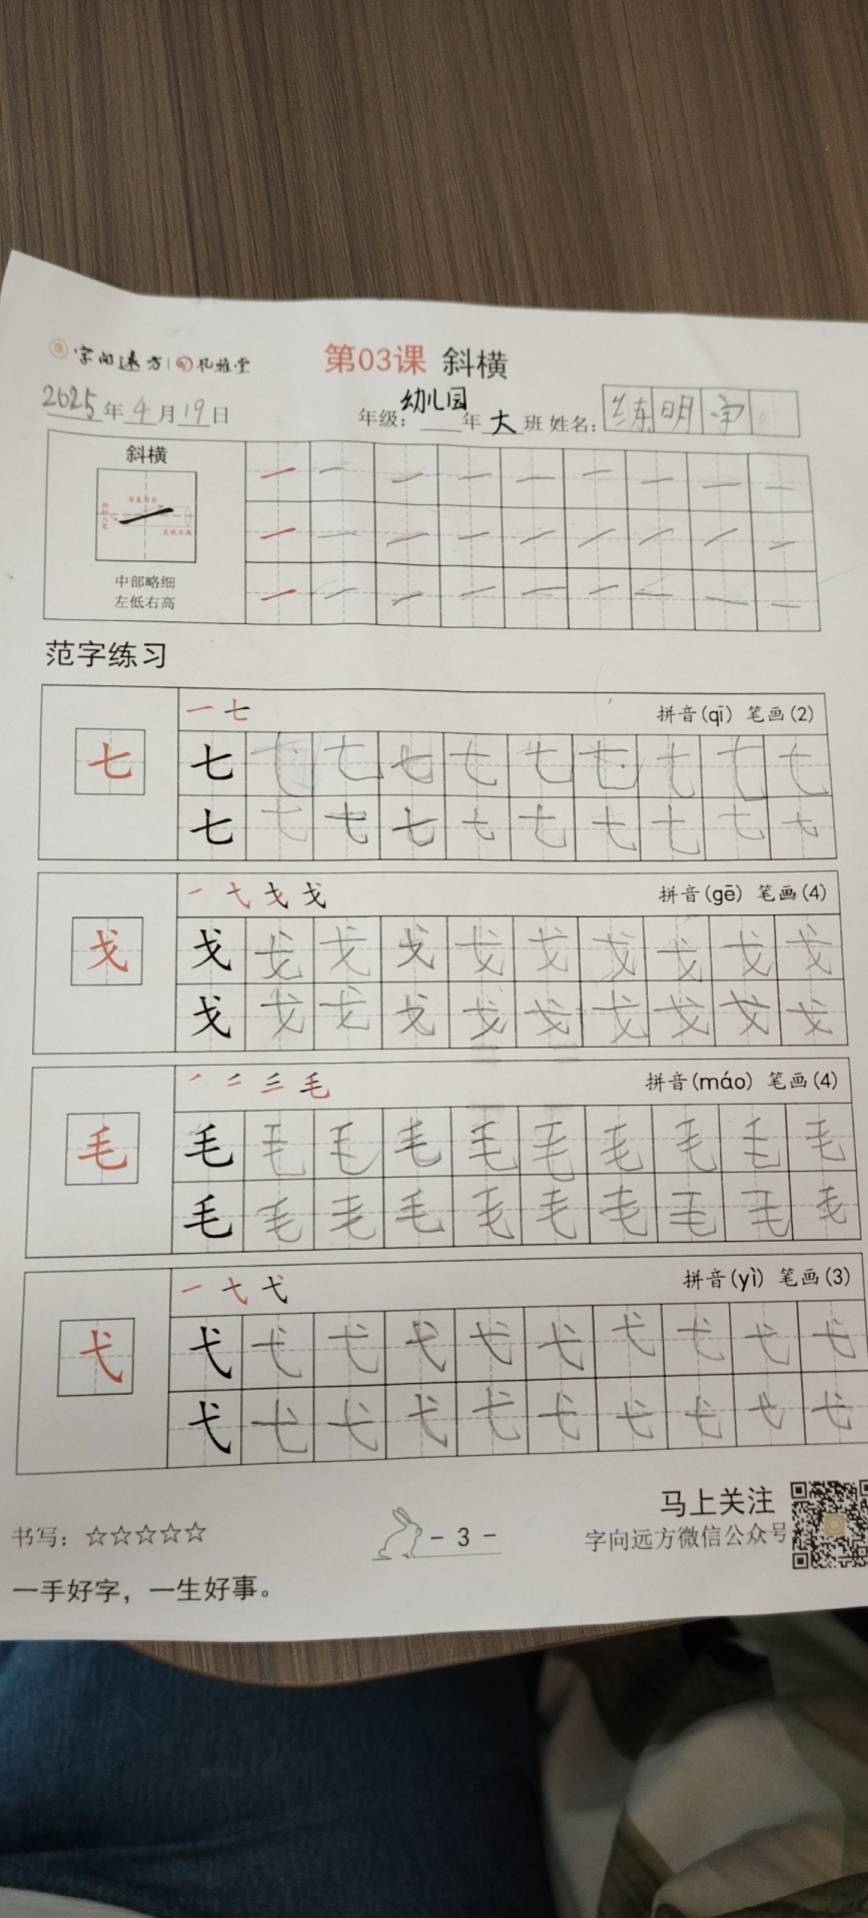 字向远方 孔雅堂
第03课 斜横
2025年4月19日
年级：幼儿园年大班 姓名：练明宇
斜横
中部略细
左低右高
范字练习
一 七
拼音(qī) 笔画(2)
七 七 七 七 七 七 七 七 七 七 七
七 七 七 七 七 七 七 七 七 七
拼音(gē) 笔画(4)
戈 戈
戈 戈 戈 戈 戈 戈 戈 戈 戈 戈 戈
戈 戈 戈 戈 戈 戈 戈 戈 戈 戈
毛
拼音(máo) 笔画(4)
毛 毛 毛 毛 毛 毛 毛 毛 毛 毛 毛
毛 毛 毛 毛 毛 毛 毛 毛 毛 毛
弋
拼音(yì) 笔画(3)
弋 弋 弋 弋 弋 弋 弋 弋 弋 弋 弋
弋 弋 弋 弋 弋 弋 弋 弋 弋 弋
书写：☆☆☆☆☆
- 3 -
马上关注
字向远方微信公众号
一手好字，一生好事。